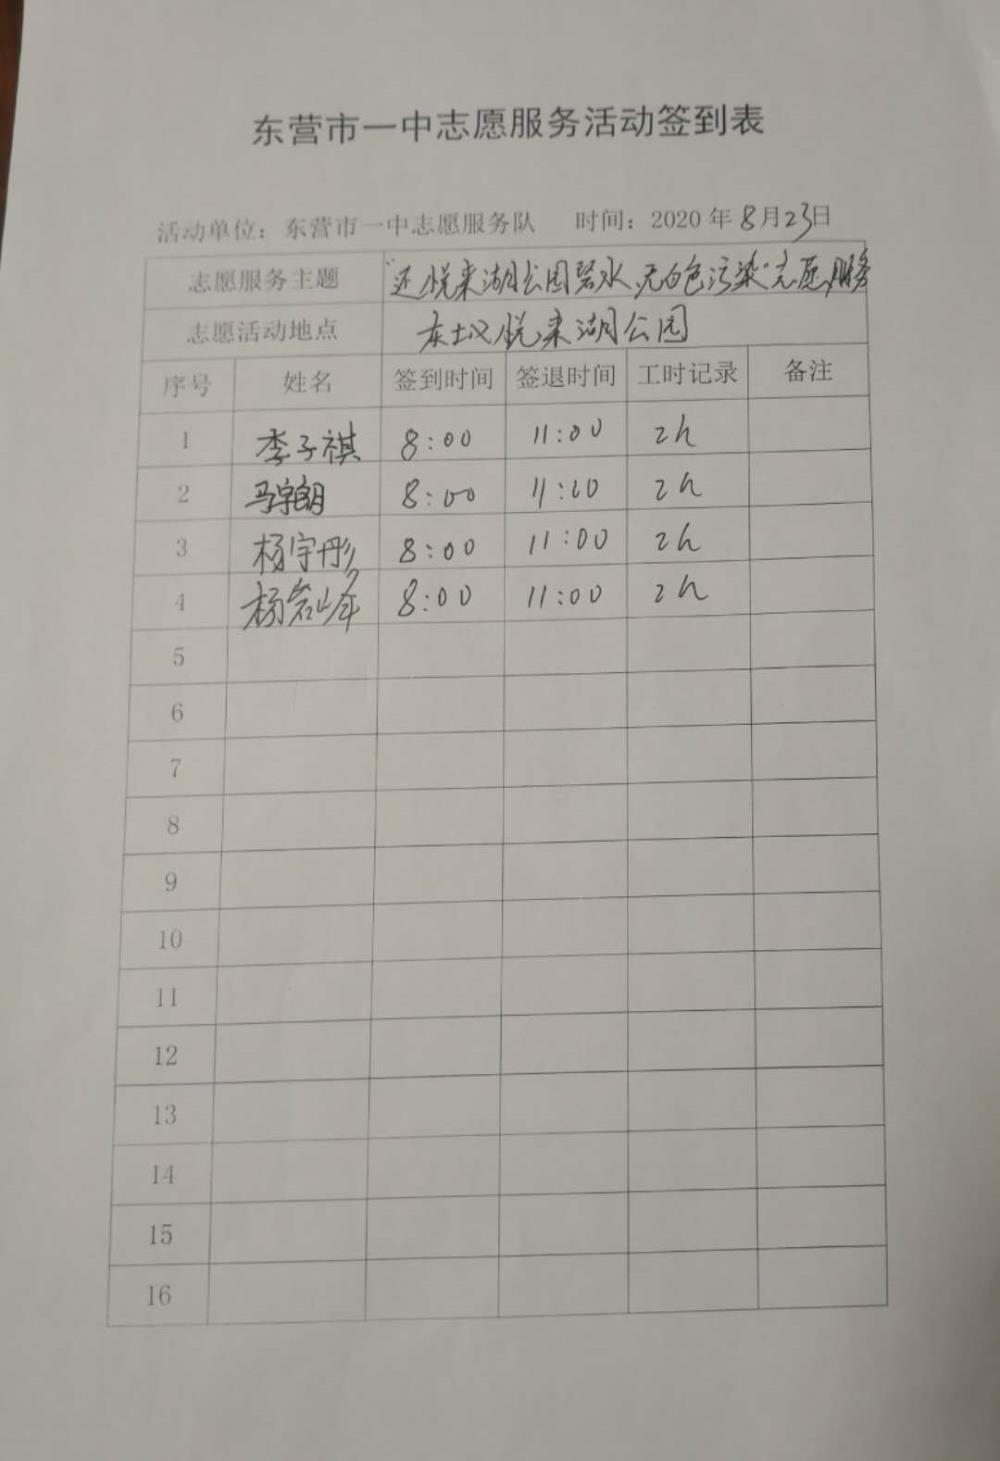 东营市一中志愿服务活动签到表
活动单位：东营市一中志愿服务队 时间：2020年8月23日
志愿服务主题 “还悦来湖公园碧水，无白色污染”志愿服务
志愿活动地点 东城悦来湖公园
序号 姓名 签到时间 签退时间 工时记录 备注
1 李子祺 8:00 11:00 2h
2 马宇朗 8:00 11:00 2h
3 杨宇彤 8:00 11:00 2h
4 杨岩峰 8:00 11:00 2h
5
6
7
8
9
10
11
12
13
14
15
16